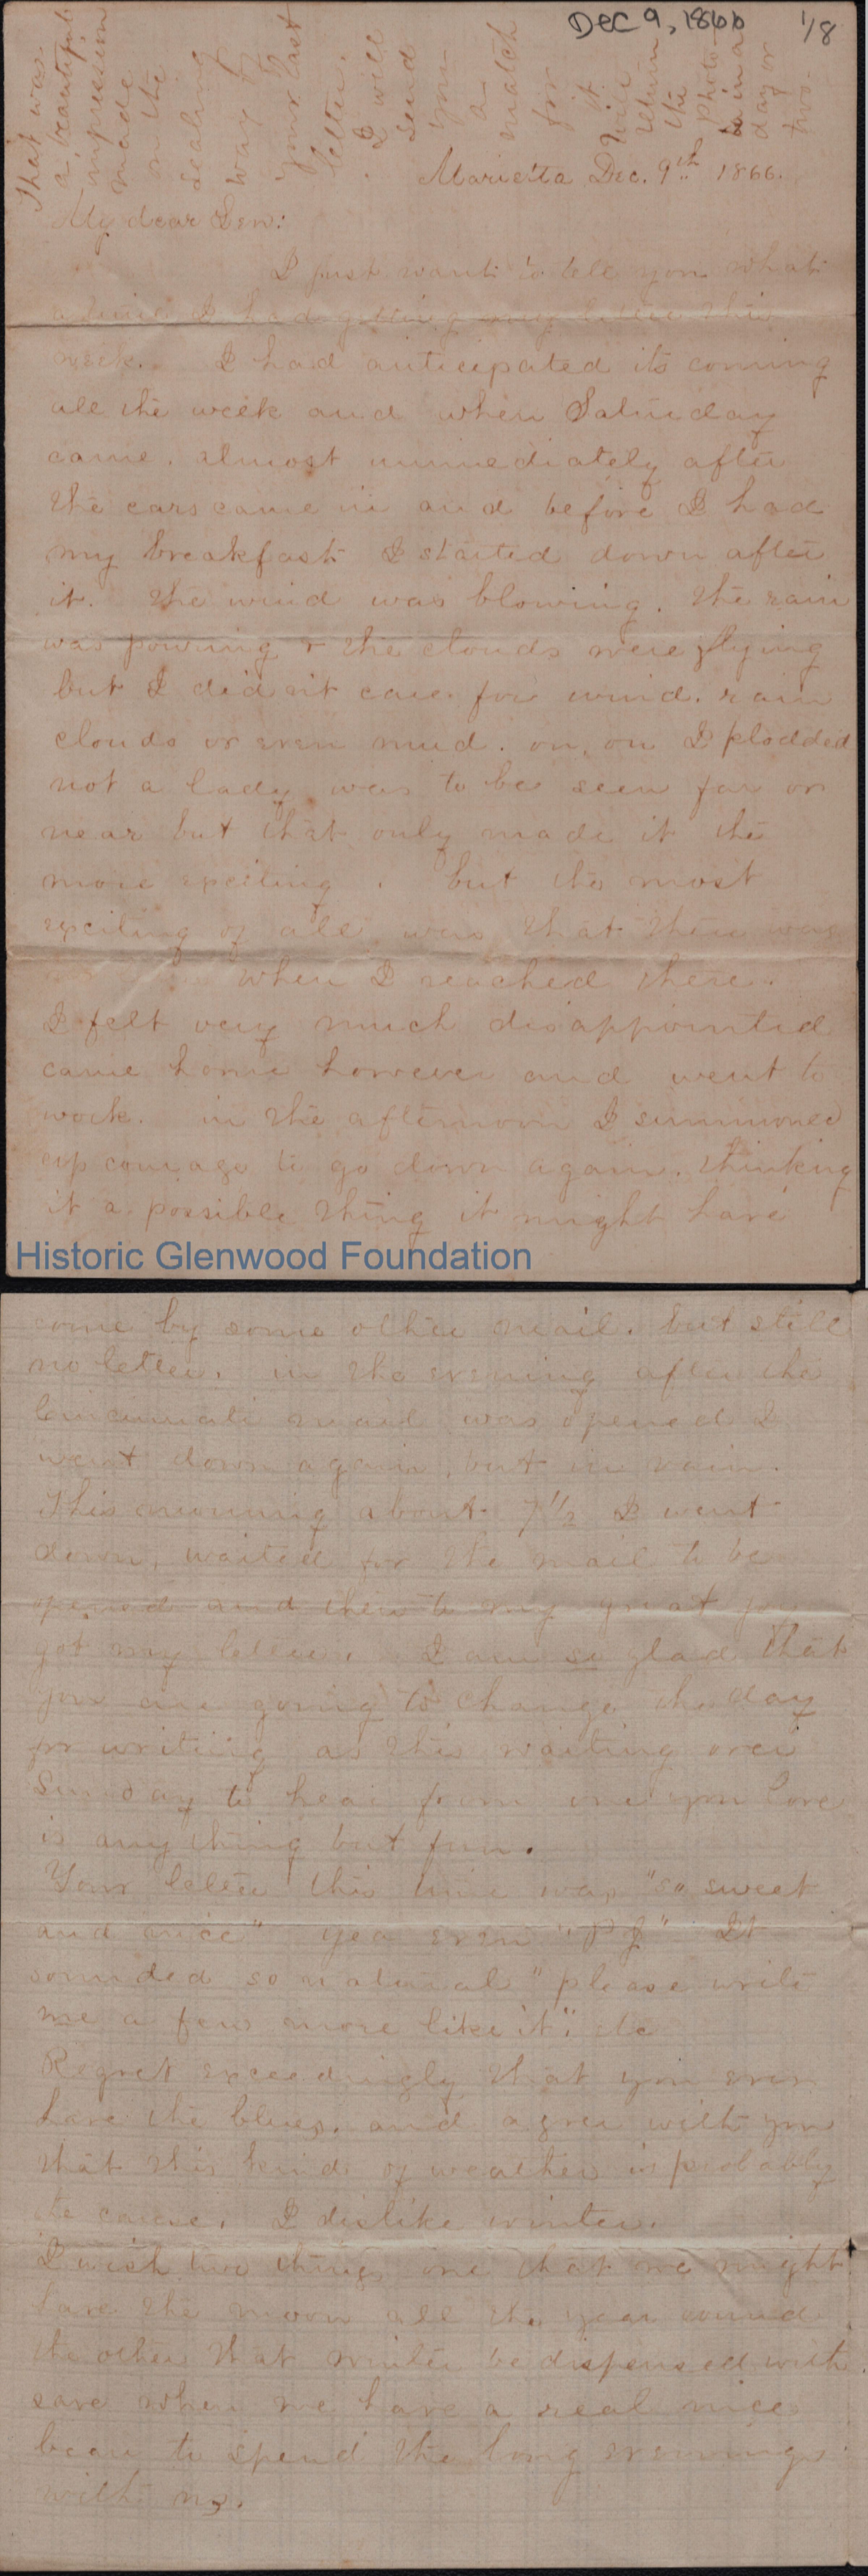 Dec 9, 1866 1/8
That was
a beautiful
impression
made
on the
sealing
wax of
your last
letter.
I will
send
you
a
match
for
it
Will
return
the
photo-
in a
day or
two.
Marietta Dec. 9th 1866.
My dear Gen:
I just want to tell you what
a time I had getting my letter this
week. I had anticipated its coming
all the week and when Saturday
came, almost immediately after
the cars came in and before I had
my breakfast I started down after
it. The wind was blowing, the rain
was pouring & the clouds were flying
but I did n't care for wind, rain
clouds or even mud. on, on I plodded
not a lady was to be seen far or
near but that only made it the
more exciting. but the most
exciting of all was that there was
when I reached there.
I felt very much disappointed
came home however and went to
work. in the afternoon I summoned
up courage to go down again, thinking
it a possible thing it might have
Historic Glenwood Foundation
come by some other mail, but still
no letter. in the evening after the
Cincinnati mail was opened I
went down again, but in vain.
This morning about 7 1/2 I went
down, waited for the mail to be
opened and then to my great joy
got my letter. I am so glad that
you are going to change the day
for writing as this waiting over
Sunday to hear from one you love
is any thing but fun.
Your letter this time was "so sweet
and nice" yea even "PJ" It
sounded so natural "please write
me a few more like it", do
Regret exceedingly that you ever
have the blues, and agree with you
that this kind of weather is probably
the cause. I dislike winter.
I wish two things one that we might
have the moon all the year round
the other that winter be dispensed with,
save when we have a real nice
beau to spend the long evenings
with us.